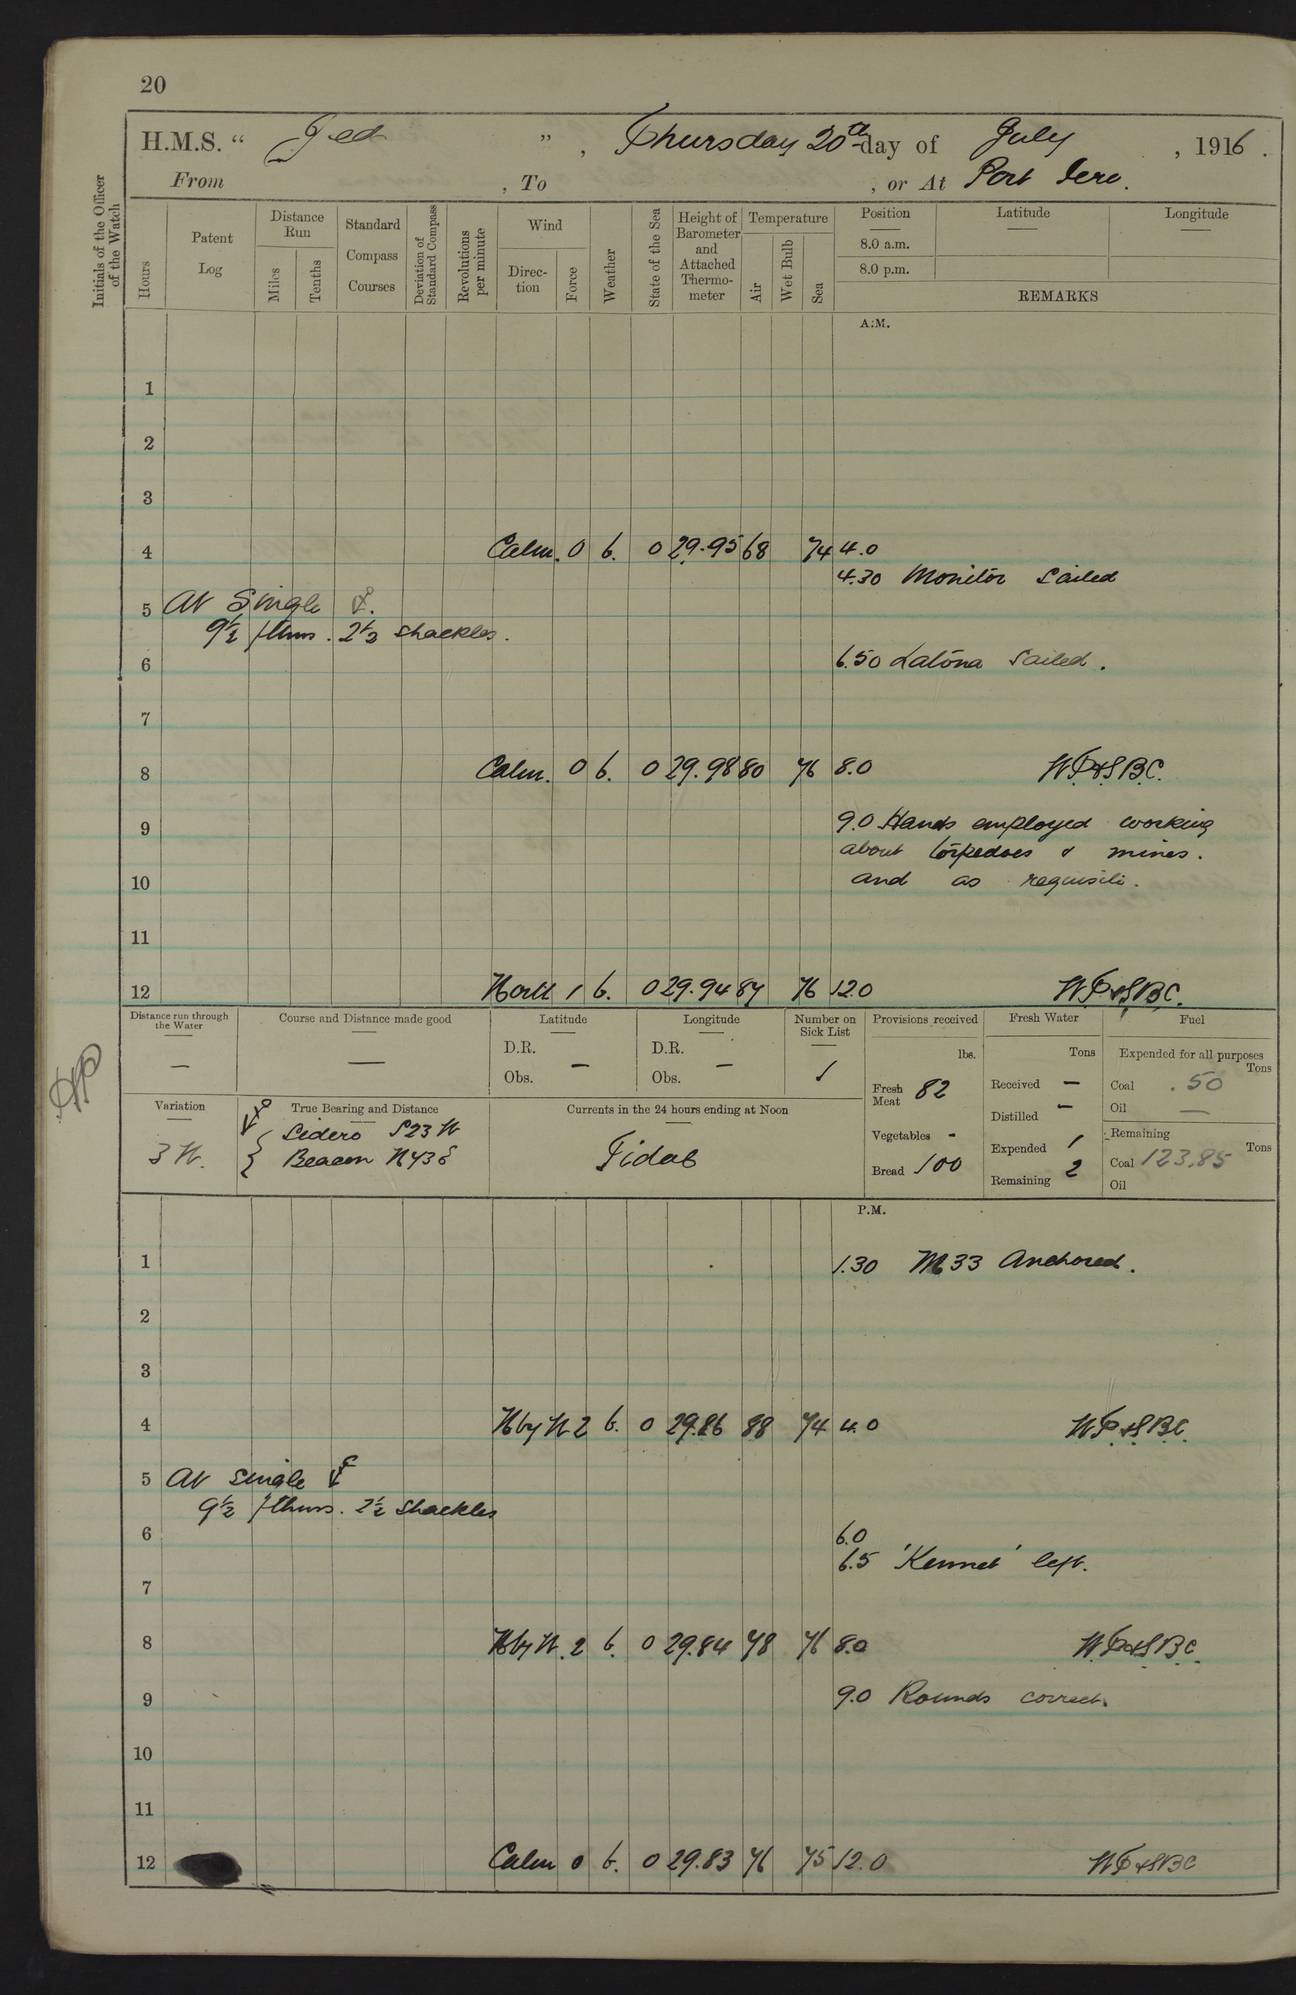 20
H.M.S. " Jed " , Thursday 20th day of July , 1916 .
From , To , or At Port Iero.
Initials of the Officer of the Watch
Hours
Patent Log
Distance Run
Miles
Tenths
Standard Compass Courses
Deviation of Standard Compass
Revolutions per minute
Wind
Direction
Force
Weather
State of the Sea
Height of Barometer and Attached Thermometer
Temperature
Air
Wet Bulb
Sea
Position
8.0 a.m.
8.0 p.m.
Latitude
Longitude
REMARKS
A.M.
1
2
3
4 Calm. 0 b. 0 29.95 68 74 4.0
4.30 Monitor Sailed
5 At Single
9½ fthms. 2½ shackles.
6 6.50 Latona Sailed.
7
8 Calm. 0 b. 0 29.98 80 76 8.0 WP&SBC.
9 9.0 Hands employed working
about torpedoes & mines.
10 and as requisite.
11
12 North 1 b. 0 29.94 87 76 12.0 WP&SBC.
Distance run through the Water
—
Course and Distance made good
—
Latitude
D.R. —
Obs.
Longitude
D.R. —
Obs.
Number on Sick List
1
Provisions received
lbs.
Fresh Meat 82
Vegetables -
Bread 100
Fresh Water
Tons
Received —
Distilled —
Expended 1
Remaining 2
Fuel
Expended for all purposes
Tons
Coal .50
Oil —
Remaining
Tons
Coal 123.85
Oil
Variation
3 W.
True Bearing and Distance
Sidero S23W
Beacon N43E
Currents in the 24 hours ending at Noon
Tidal
P.M.
1 1.30 M33 Anchored.
2
3
4 N by W 2 b. 0 29.86 88 74 4.0 WP&SBC.
5 At single
9½ fthms. 2½ shackles
6 6.0
6.5 'Kennet' left.
7
8 N by W. 2 b. 0 29.84 78 76 8.0 WP&SBC.
9 9.0 Rounds correct.
10
11
12 Calm 0 b. 0 29.83 76 75 12.0 WP&SBC